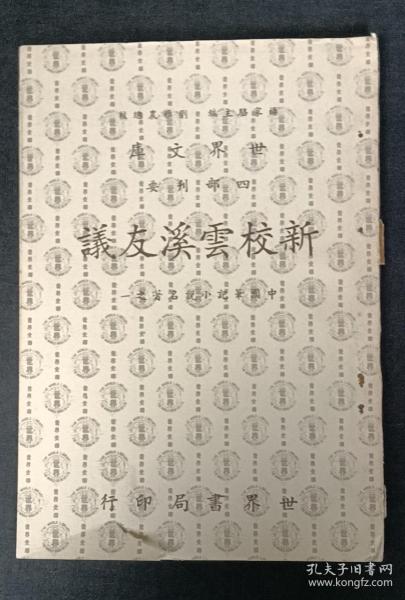 楊家駱主編 劉雅農總校
世界文庫
四部刊要
新校雲溪友議
中國筆記小說名著之一
世界書局印行
孔夫子旧书网
www.kongfz.com